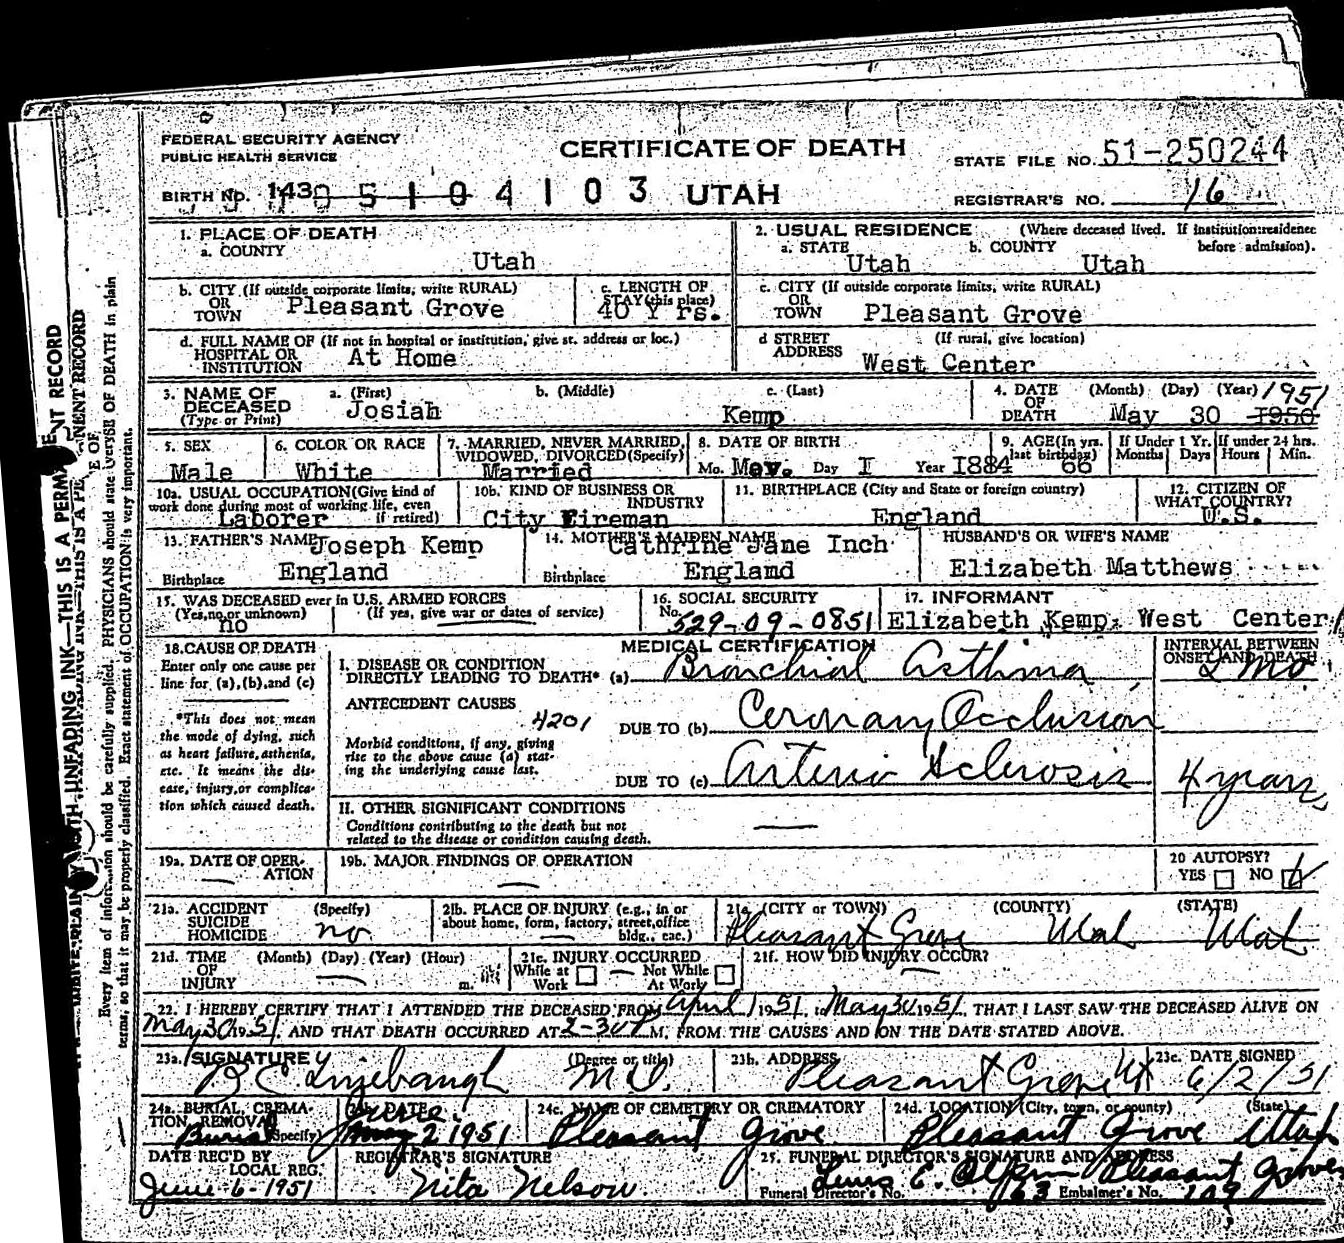 FEDERAL SECURITY AGENCY
PUBLIC HEALTH SERVICE
CERTIFICATE OF DEATH
STATE FILE NO. 51-250244
BIRTH NO. 143 0 5 1 0 4 1 0 3 UTAH
REGISTRAR'S NO. 16
1. PLACE OF DEATH
a. COUNTY Utah
2. USUAL RESIDENCE (Where deceased lived. If institution: residence before admission).
a. STATE Utah b. COUNTY Utah
b. CITY (If outside corporate limits, write RURAL) OR TOWN Pleasant Grove
c. LENGTH OF STAY (this place) 40 Yrs.
c. CITY (If outside corporate limits, write RURAL) OR TOWN Pleasant Grove
d. FULL NAME OF (If not in hospital or institution, give st. address or loc.) HOSPITAL OR INSTITUTION At Home
d STREET ADDRESS (If rural, give location) West Center
3. NAME OF DECEASED (Type or Print) a. (First) Josiah b. (Middle) c. (Last) Kemp
4. DATE OF DEATH (Month) (Day) (Year) May 30 1950 1951
5. SEX Male
6. COLOR OR RACE White
7. MARRIED, NEVER MARRIED, WIDOWED, DIVORCED (Specify) Married
8. DATE OF BIRTH Mo. May. Day I Year I884
9. AGE (In yrs. last birthday) 66
If Under 1 Yr. Months Days
If under 24 hrs. Hours Min.
10a. USUAL OCCUPATION (Give kind of work done during most of working life, even if retired) Laborer
10b. KIND OF BUSINESS OR INDUSTRY City Fireman
11. BIRTHPLACE (City and State or foreign country) England
12. CITIZEN OF WHAT COUNTRY? U.S.
13. FATHER'S NAME Joseph Kemp
Birthplace England
14. MOTHER'S MAIDEN NAME Cathrine Jane Inch
Birthplace Englamd
HUSBAND'S OR WIFE'S NAME
Elizabeth Matthews
15. WAS DECEASED ever in U.S. ARMED FORCES
(Yes, no, or unknown) (If yes, give war or dates of service)
no
16. SOCIAL SECURITY No. 529-09-0851
17. INFORMANT
Elizabeth Kemp, West Center
18. CAUSE OF DEATH
Enter only one cause per line for (a), (b), and (c)
*This does not mean the mode of dying, such as heart failure, asthenia, etc. It means the disease, injury, or complication which caused death.
MEDICAL CERTIFICATION
INTERVAL BETWEEN ONSET AND DEATH
I. DISEASE OR CONDITION DIRECTLY LEADING TO DEATH* (a) Bronchial Asthma 2 Mo
ANTECEDENT CAUSES
4201
DUE TO (b) Coronary Occlusion
Morbid conditions, if any, giving rise to the above cause (a) stating the underlying cause last.
DUE TO (c) Arterio Sclerosis 4 years
II. OTHER SIGNIFICANT CONDITIONS
Conditions contributing to the death but not related to the disease or condition causing death.
19a. DATE OF OPERATION
19b. MAJOR FINDINGS OF OPERATION
20 AUTOPSY? YES NO
21a. ACCIDENT SUICIDE HOMICIDE (Specify) no
21b. PLACE OF INJURY (e.g., in or about home, form, factory, street, office bldg., eac.)
21c. (CITY or TOWN) (COUNTY) (STATE)
Pleasant Grove Utah Utah
21d. TIME OF INJURY (Month) (Day) (Year) (Hour) m.
21e. INJURY OCCURRED While at Work Not While At Work
21f. HOW DID INJURY OCCUR?
22. I HEREBY CERTIFY THAT I ATTENDED THE DECEASED FROM April 1 1951, to May 30 1951, THAT I LAST SAW THE DECEASED ALIVE ON
May 30 1951, AND THAT DEATH OCCURRED AT 2-30 M, FROM THE CAUSES AND ON THE DATE STATED ABOVE.
23a. SIGNATURE (Degree or title) M.D.
23b. ADDRESS Pleasant Grove Ut
23c. DATE SIGNED 6/2/51
24a. BURIAL, CREMATION, REMOVAL (Specify) Burial
24b. DATE June 2 1951
24c. NAME OF CEMETERY OR CREMATORY Pleasant Grove
24d. LOCATION (City, town, or county) (State) Pleasant Grove Utah
DATE REC'D BY LOCAL REG. June-6-1951
REGISTRAR'S SIGNATURE Nita Nelson
25. FUNERAL DIRECTOR'S SIGNATURE AND ADDRESS
E. Pleasant Grove
Funeral Director's No. 63 Embalmer's No.
WITH UNFADING INK—THIS IS A PERMANENT RECORD
Every item of information should be carefully supplied. PHYSICIANS should state CAUSE OF DEATH in plain
terms, so that it may be properly classified. Exact statement of OCCUPATION is very important.